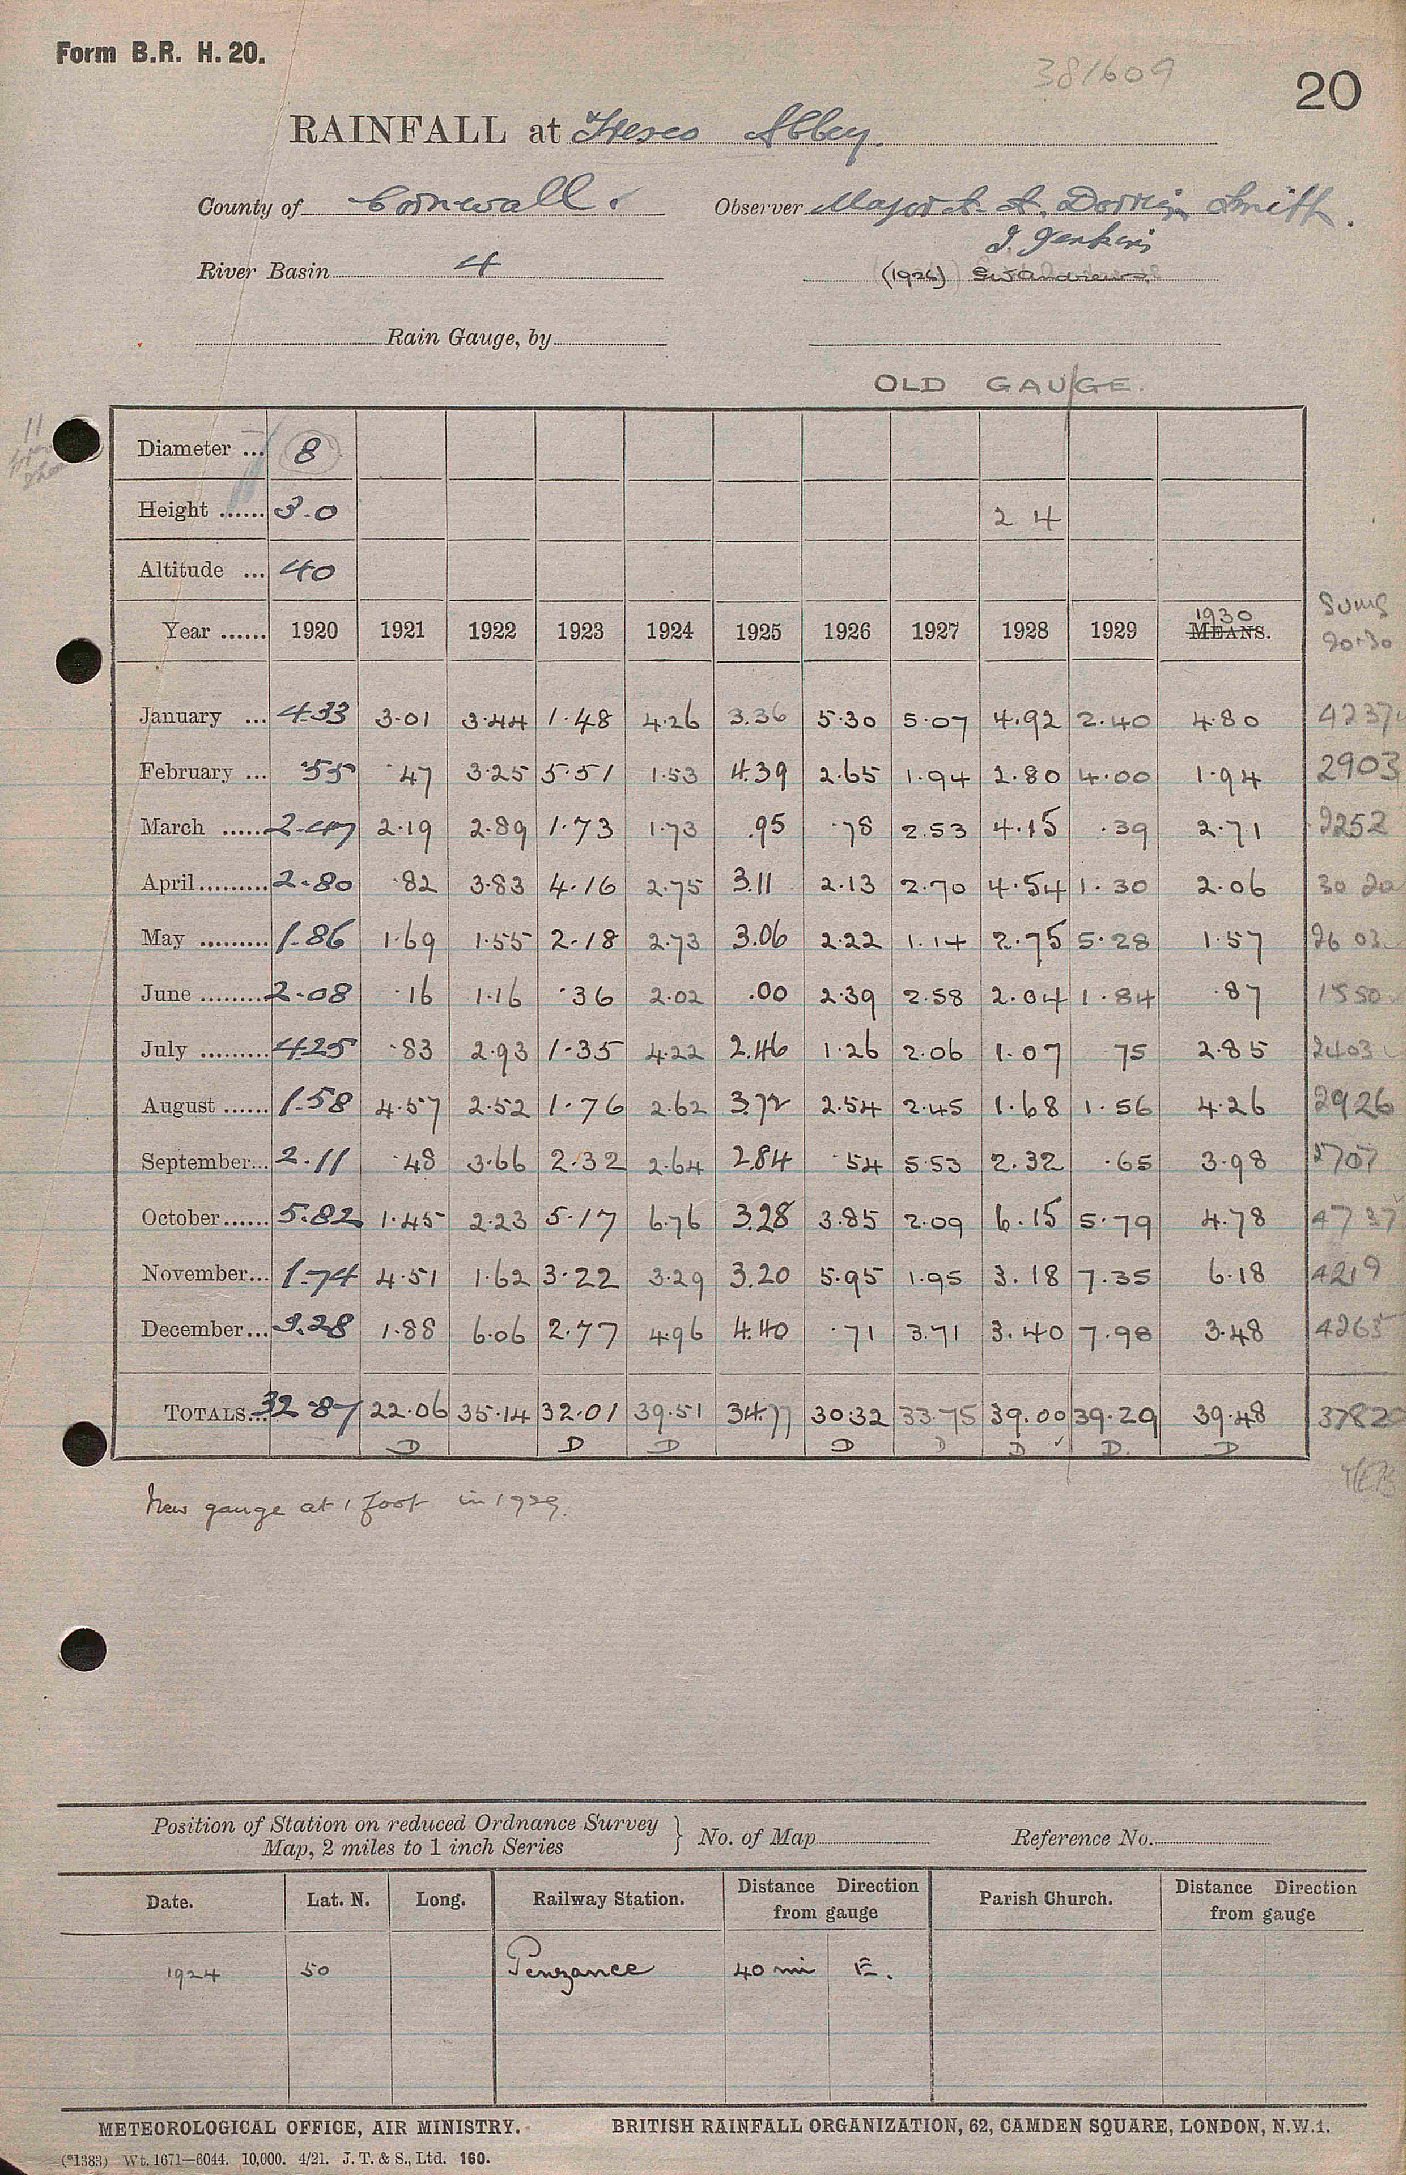 Form B.R. H. 20.
381609
20
RAINFALL at Tresco Abbey.
County of Cornwall. Observer Major A. A. Dorrien Smith.
J. Jenkins
River Basin 4 (1926)
Rain Gauge, by
OLD GAUGE.
Diameter ... 8
Height ...... 3.0 2 4
Altitude ... 40
Year ...... 1920 1921 1922 1923 1924 1925 1926 1927 1928 1929 1930 MEANS. Sums 20-30
January ... 4.33 3.01 3.44 1.48 4.26 3.36 5.30 5.07 4.92 2.40 4.80 4237
February ... .55 .47 3.25 5.51 1.53 4.39 2.65 1.94 2.80 4.00 1.94 2903
March ...... 2.47 2.19 2.89 1.73 1.73 .95 .78 2.53 4.15 .39 2.71 2252
April ......... 2.80 .82 3.83 4.16 2.75 3.11 2.13 2.70 4.54 1.30 2.06 30 20
May ......... 1.86 1.69 1.55 2.18 2.73 3.06 2.22 1.14 2.75 5.28 1.57 26 03
June ......... 2.08 .16 1.16 .36 2.02 .00 2.39 2.58 2.04 1.84 .87 1550
July ......... 4.25 .83 2.93 1.35 4.22 2.46 1.26 2.06 1.07 75 2.85 2403
August ...... 1.58 4.57 2.52 1.76 2.62 3.72 2.54 2.45 1.68 1.56 4.26 2926
September... 2.11 .48 3.66 2.32 2.64 2.84 .54 5.53 2.32 .65 3.98 2707
October...... 5.82 1.45 2.23 5.17 6.76 3.28 3.85 2.09 6.15 5.79 4.78 4737
November... 1.74 4.51 1.62 3.22 3.29 3.20 5.95 1.95 3.18 7.35 6.18 4219
December... 3.28 1.88 6.06 2.77 4.96 4.40 .71 3.71 3.40 7.98 3.48 4263
TOTALS... 32.87 22.06 35.14 32.01 39.51 34.77 30.32 33.75 39.00 39.29 39.48 37820
D D D D D D D. D
New gauge at 1 foot in 1929.
Position of Station on reduced Ordnance Survey
Map, 2 miles to 1 inch Series } No. of Map Reference No.
Date. Lat. N. Long. Railway Station. Distance Direction from gauge Parish Church. Distance Direction from gauge
1924 50 Penzance 40 mi E.
METEOROLOGICAL OFFICE, AIR MINISTRY. BRITISH RAINFALL ORGANIZATION, 62, CAMDEN SQUARE, LONDON, N.W.1.
(*1383) Wt. 1671—6044. 10,000. 4/21. J. T. & S., Ltd. 160.